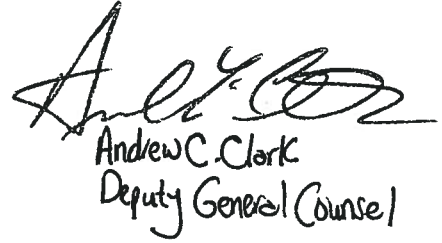 Andrew C. Clark
Deputy General Counsel